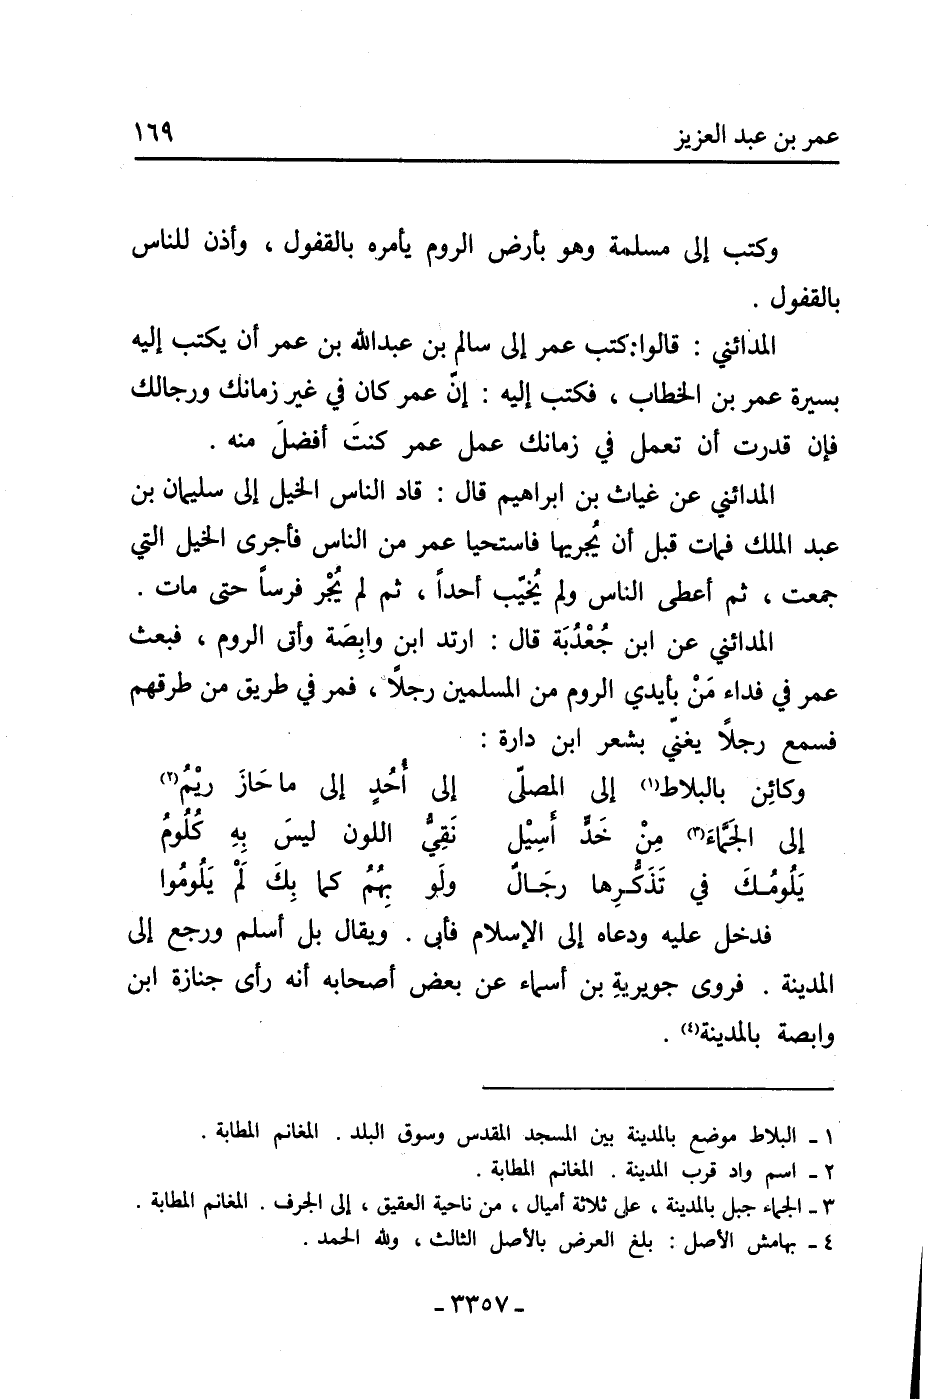 عمر بن عبد العزيز ١٦٩
وكتب إلى مسلمة وهو بأرض الروم يأمره بالقفول ، وأذن للناس
بالقفول .
المدائني : قالوا:كتب عمر إلى سالم بن عبدالله بن عمر أن يكتب إليه
بسيرة عمر بن الخطاب ، فكتب إليه : إنّ عمر كان في غير زمانك ورجالك
فإن قدرت أن تعمل في زمانك عمل عمر كنتَ أفضلَ منه .
المدائني عن غياث بن ابراهيم قال : قاد الناس الخيل إلى سليمان بن
عبد الملك فمات قبل أن يُجريها فاستحيا عمر من الناس فأجرى الخيل التي
جمعت ، ثم أعطى الناس ولم يُخيّب أحداً ، ثم لم يُجْر فرساً حتى مات .
المدائني عن ابن جُعْدُبَة قال : ارتد ابن وابِصَة وأتى الروم ، فبعث
عمر في فداء مَنْ بأيدي الروم من المسلمين رجلًا ، فمر في طريق من طرقهم
فسمع رجلًا يغنّي بشعر ابن دارة :
وكائِن بالبلاط(١) إلى المصلّى إلى أُحُدٍ إلى ماحَازَ ريْمُ(٢)
إلى الجَمَّاءَ(٣) مِنْ خَدٍّ أَسِيْل نَقِيُّ اللون ليسَ بِهِ كُلُومُ
يَلُومُـكَ في تَذَكُّـرِها رجَـالٌ ولَو بِهُمُ كما بِكَ لَمْ يَلُومُوا
فدخل عليه ودعاه إلى الإسلام فأبى . ويقال بل أسلم ورجع إلى
المدينة . فروى جويريةِ بن أسماء عن بعض أصحابه أنه رأى جنازة ابن
وابصة بالمدينة(٤) .
١ ـ البلاط موضع بالمدينة بين المسجد المقدس وسوق البلد . المغانم المطابة .
٢ ـ اسم واد قرب المدينة . المغانم المطابة .
٣ ـ الجماء جبل بالمدينة ، على ثلاثة أميال ، من ناحية العقيق ، إلى الجرف . المغانم المطابة .
٤ ـ بهامش الأصل : بلغ العرض بالأصل الثالث ، ولله الحمد .
ـ ٣٣٥٧ ـ